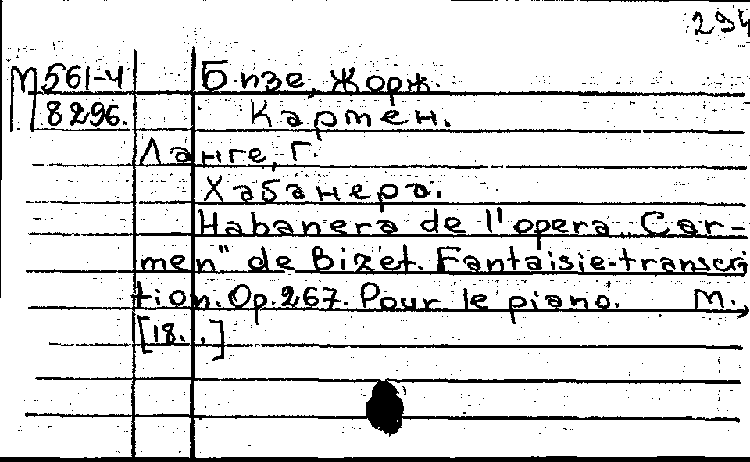 294
М 561-4 Бизе, Жорж.
8296. Кармен.
Ланге, Г.
Хабанера.
Habanera de l'opera „Car-
men" de Bizet. Fantaisie-transcri
tion. Op. 267. Pour le piano. М.,
[18..]